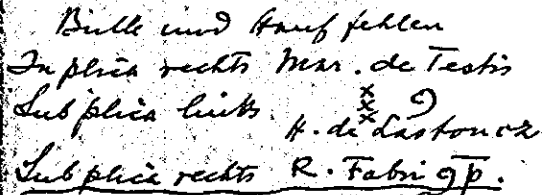 Bulle und Hanf fehlen
In plica rechts Mar. de Testis
Sub plica links. xxx
H. de Lastoncz
Sub plica rechts R. Fabri gp.